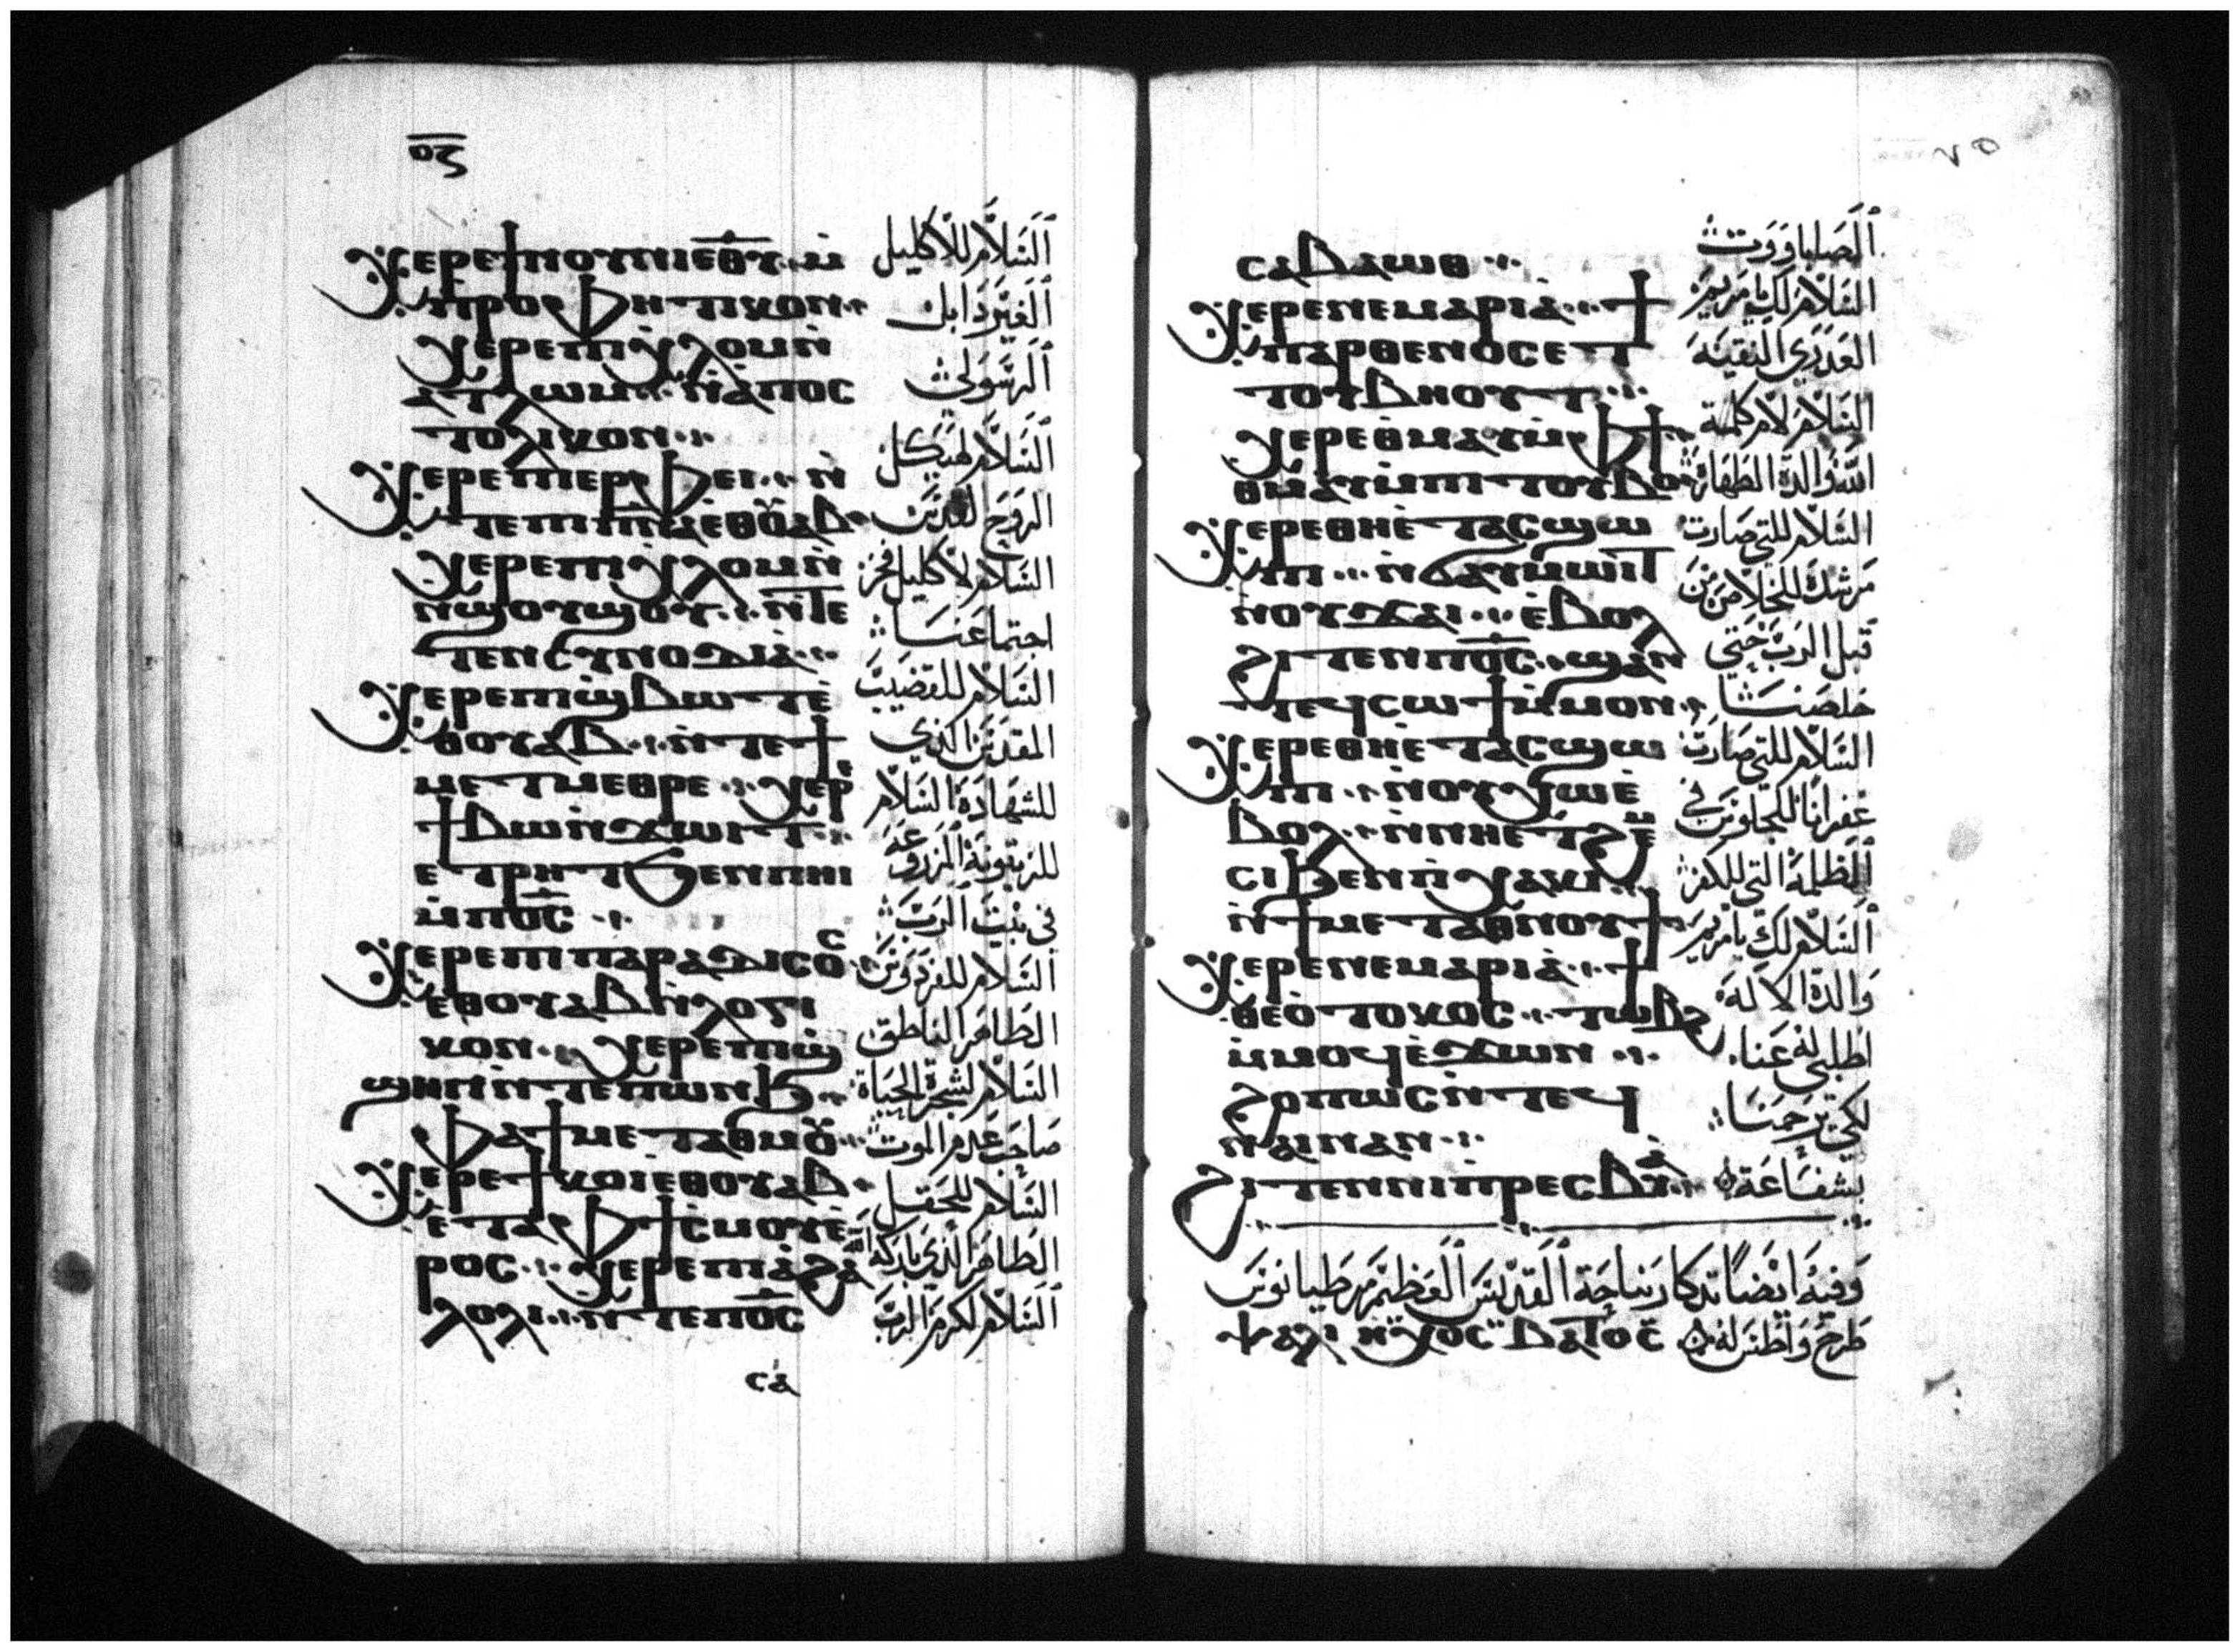 ⲟⲍ
ⲭⲉⲣⲉ ϯⲛⲟⲩⲛⲓⲉⲑⲩ ⲙ̇
ⲡⲣⲟⲫⲏⲧⲓⲕⲟⲛ
ⲭⲉⲣⲉ ⲡⲓⲭⲗⲟⲙ ⲛ̇
ⲁⲧⲗⲱⲙ ⲛ̇ⲁⲡⲟⲥ
ⲧⲟⲗⲓⲕⲟⲛ
ⲭⲉⲣⲉ ⲡⲓⲉⲣⲫⲉⲓ ⲛ̇
ⲧⲉ ⲡⲓⲡⲛⲁ ⲉⲑⲟⲩⲁⲃ
ⲭⲉⲣⲉ ⲡⲓⲭⲗⲟⲙ ⲛ̇
ⲛϣⲟⲩϣⲟⲩ ⲛ̇ⲧⲉ
ⲧⲉⲛⲥⲩⲛⲟⲇⲓⲁ
ⲭⲉⲣⲉ ⲡⲓϣ̇ⲃⲱⲧ ⲉ̇
ⲑⲟⲩⲁⲃ ⲛ̇ⲧⲉ ϯ
ⲙⲉⲧⲙⲉⲑⲣⲉ ⲭⲉⲣⲉ
ϯⲃⲱ ⲛ̇ϫⲱⲓⲧ
ⲉⲧⲣⲏⲧ ϧⲉⲛ ⲡⲏⲓ
ⲙ̇ⲡⲟ̅ⲥ̅
ⲭⲉⲣⲉ ⲡⲓⲡⲁⲣⲁⲇⲓⲥⲟⲥ
ⲉⲑⲟⲩⲁⲃ ⲛ̇ⲗⲟⲅⲓ
ⲕⲟⲛ ⲭⲉⲣⲉ ⲡⲓϣ̇
ϣⲏⲛ ⲛ̇ⲧⲉ ⲡⲱⲛϧ
ⲫⲁ ϯⲙⲉⲧⲁⲑⲙⲟⲩ
ⲭⲉⲣⲉ ϯⲕⲟⲓ ⲉⲑⲟⲩⲁⲃ
ⲉ̇ⲧⲁ ⲫϯ ⲥ̇ⲙⲟⲩ ⲉ̇
ⲣⲟⲥ ⲭⲉⲣⲉ ⲡⲓⲁ̇ϩⲁ
ⲗⲟⲗⲓ ⲛ̇ⲧⲉ ⲡⲟ̅ⲥ̅
ⲥⲁ̇
السلام للاكليل
الغير دابل
الرسولي
السلام لهيكل
الروح القدس
السلام لاكليل فخر
اجتماعنا
السلام للقضيب
المقدس الذي
للشهادة السلام
للزيتونة المزروعة
في بيت الرب
السلام للفردوس
الطاهر الناطق
السلام لشجرة الحياة
صاحب عدم الموت
السلام للحقل
الطاهر الذي باركه الله
السلام لكرم الرب
ⲥⲁⲃⲁⲱⲑ
ⲭⲉⲣⲉ ⲛⲉ ⲙⲁⲣⲓⲁ ϯ
ⲡⲁⲣⲑⲉⲛⲟⲥ ⲉⲧ
ⲧⲟⲩⲃⲏⲟⲩⲧ
ⲭⲉⲣⲉ ⲑⲙⲁⲩ ⲙ̇ⲫϯ
ⲑⲙⲁⲩ ⲙ̇ⲡⲓⲧⲟⲩⲃⲟ
ⲭⲉⲣⲉ ⲑⲏ ⲉ̇ⲧⲁⲥϣⲱ
ⲡⲓ ⲛ̇ϭⲁⲩⲙⲱⲓⲧ
ⲛⲟⲩϫⲁⲓ ⲉ̇ⲃⲟⲗ
ϩⲓⲧⲉⲛ ⲡⲟ̅ⲥ̅ ϣⲁⲛ
ⲧⲉϥⲥⲱϯ ⲙ̇ⲙⲟⲛ
ⲭⲉⲣⲉ ⲑⲏ ⲉ̇ⲧⲁⲥϣⲱ
ⲡⲓ ⲛ̇ⲟⲩⲭⲱ ⲉ̇
ⲃⲟⲗ ⲛ̇ⲛⲏ ⲉⲧϩⲉⲙ
ⲥⲓ ϧⲉⲛ ⲡⲭⲁⲕⲓ
ⲛ̇ϯⲙⲉⲧⲁⲑⲛⲟⲩϯ
ⲭⲉⲣⲉ ⲛⲉ ⲙⲁⲣⲓⲁ ϯ
ⲑⲉⲟ̇ⲧⲟⲕⲟⲥ ⲧⲱⲃϩ
ⲙ̇ⲙⲟϥ ⲉ̇ϫⲱⲛ
ϩⲟⲡⲱⲥ ⲛ̇ⲧⲉϥ
ⲛⲁⲓ ⲛⲁⲛ
ϩⲓⲧⲉⲛ ⲛⲓⲡⲣⲉⲥⲃⲓⲁ
الصاباووت
السلام لك يا مريم
العدري النقية
السلام لام كلمة
الله والدة الطهارة
السلام للتي صارت
مرشد للخلاص من
قبل الرب حتي
خلصنا
السلام للتي صارت
غفرانا للجلوس في
الظلمة التي للكفر
السلام لك يا مريم
والدة الاله
اطلبي له عنا
لكي يرحمنا
بشفاعة
وفيه ايضا تدكار نياحة القديس العظيم مرطيانوس
طرح واطس له ⲯⲁⲗⲓ ⲏⲭⲟⲥ ⲃⲁⲧⲟⲥ